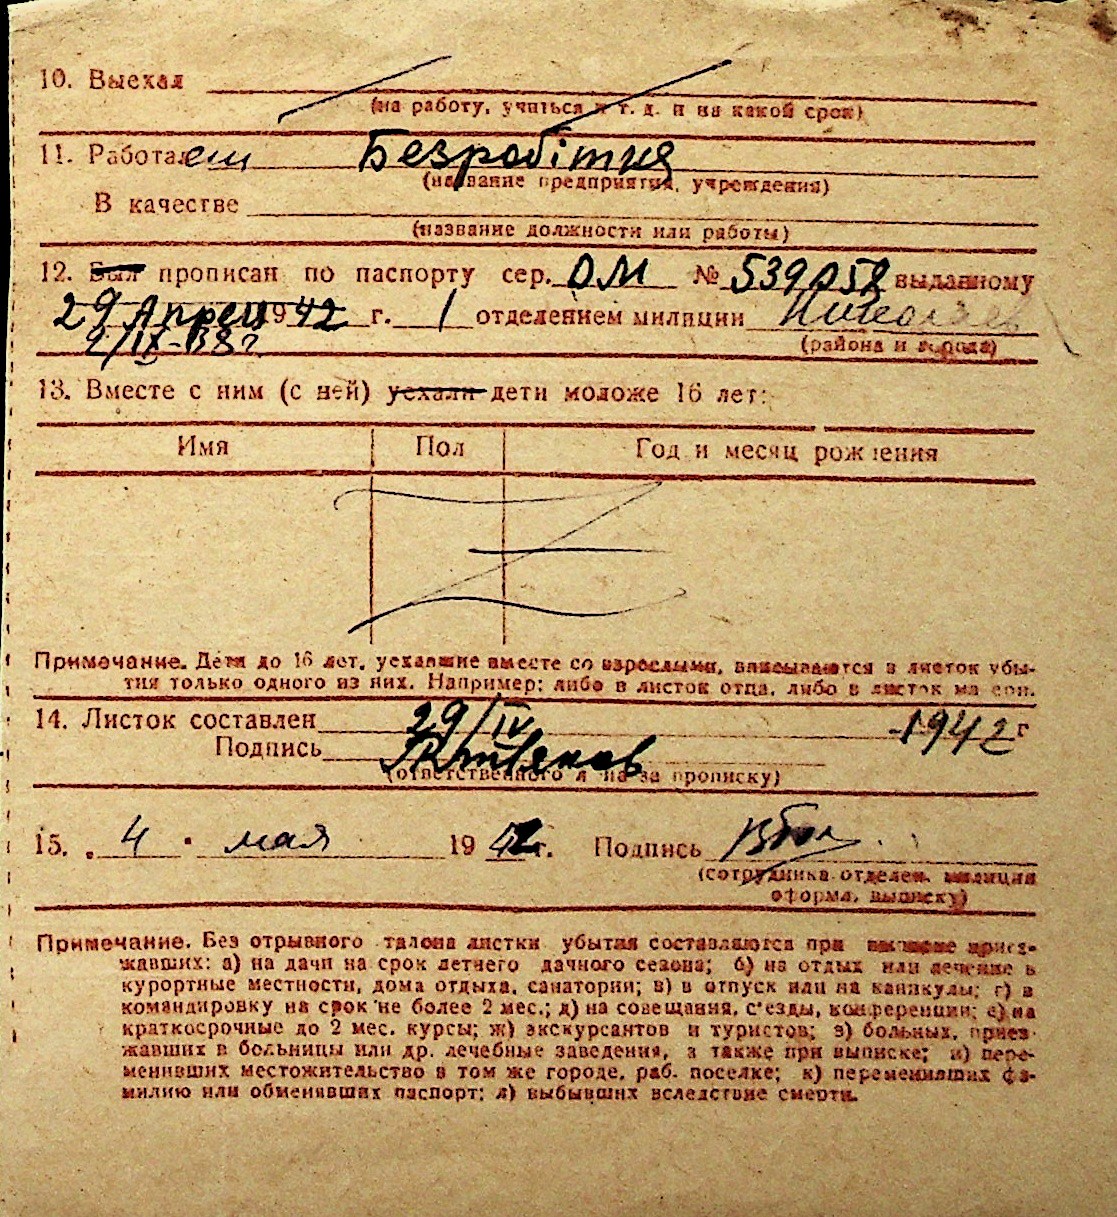 10. Выехал
(на работу, учиться и т. д. и на какой срок)
11. Работает Безробітня
(название предприятия, учреждения)
В качестве
(название должности или работы)
12. Был прописан по паспорту сер. ОМ № 539058 выданному
29 Апреля 1942 г. 1 отделением милиции Николаев
2/IX-38г.
(района и города)
13. Вместе с ним (с ней) уехали дети моложе 16 лет:
Имя Пол Год и месяц рождения
Примечание. Дети до 16 лет, уехавшие вместе со взрослыми, вписываются в листок убы-
тия только одного из них. Например: либо в листок отца, либо в листок матери.
14. Листок составлен 29/IV 1942 г
Подпись
(ответственного л на за прописку)
15. „ 4 " мая 1942 г. Подпись
(сотрудника отделен. милиции
оформл. выписку)
Примечание. Без отрывного талона листки убытия составляются при выписке приез-
жавших: а) на дачи на срок летнего дачного сезона; б) на отдых или лечение в
курортные местности, дома отдыха, санатории; в) в отпуск или на каникулы; г) в
командировку на срок не более 2 мес.; д) на совещания, с'езды, конференции; е) на
краткосрочные до 2 мес. курсы; ж) экскурсантов и туристов; з) больных, приез-
жавших в больницы или др. лечебные заведения, а также при выписке; и) пере-
менивших местожительство в том же городе, раб. поселке; к) переменивших фа-
милию или обменявших паспорт; л) выбывших вследствие смерти.